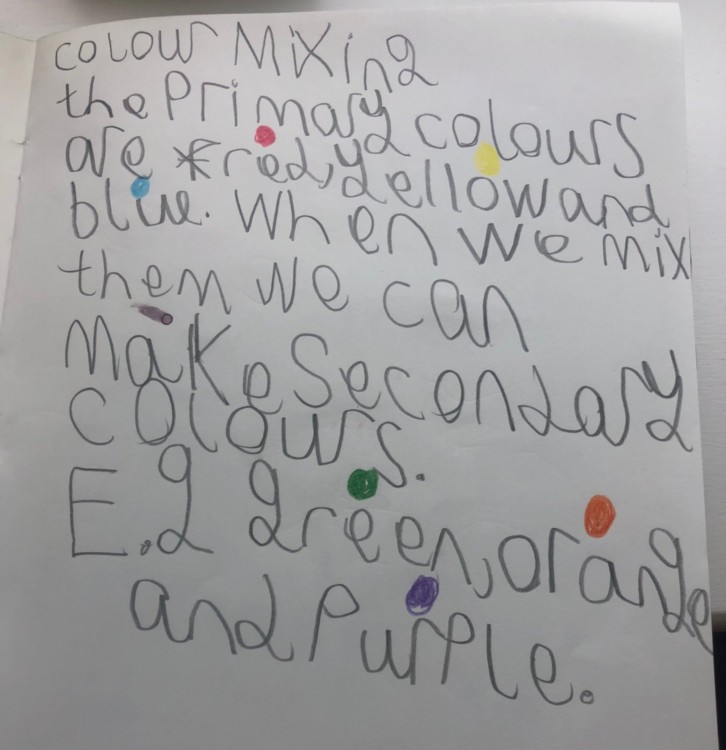 colour Mixing
the Primary colours
are *red, yellow and
blue. When we mix
them we can
make Secondary
colours.
E.g green, orange
and Purple.